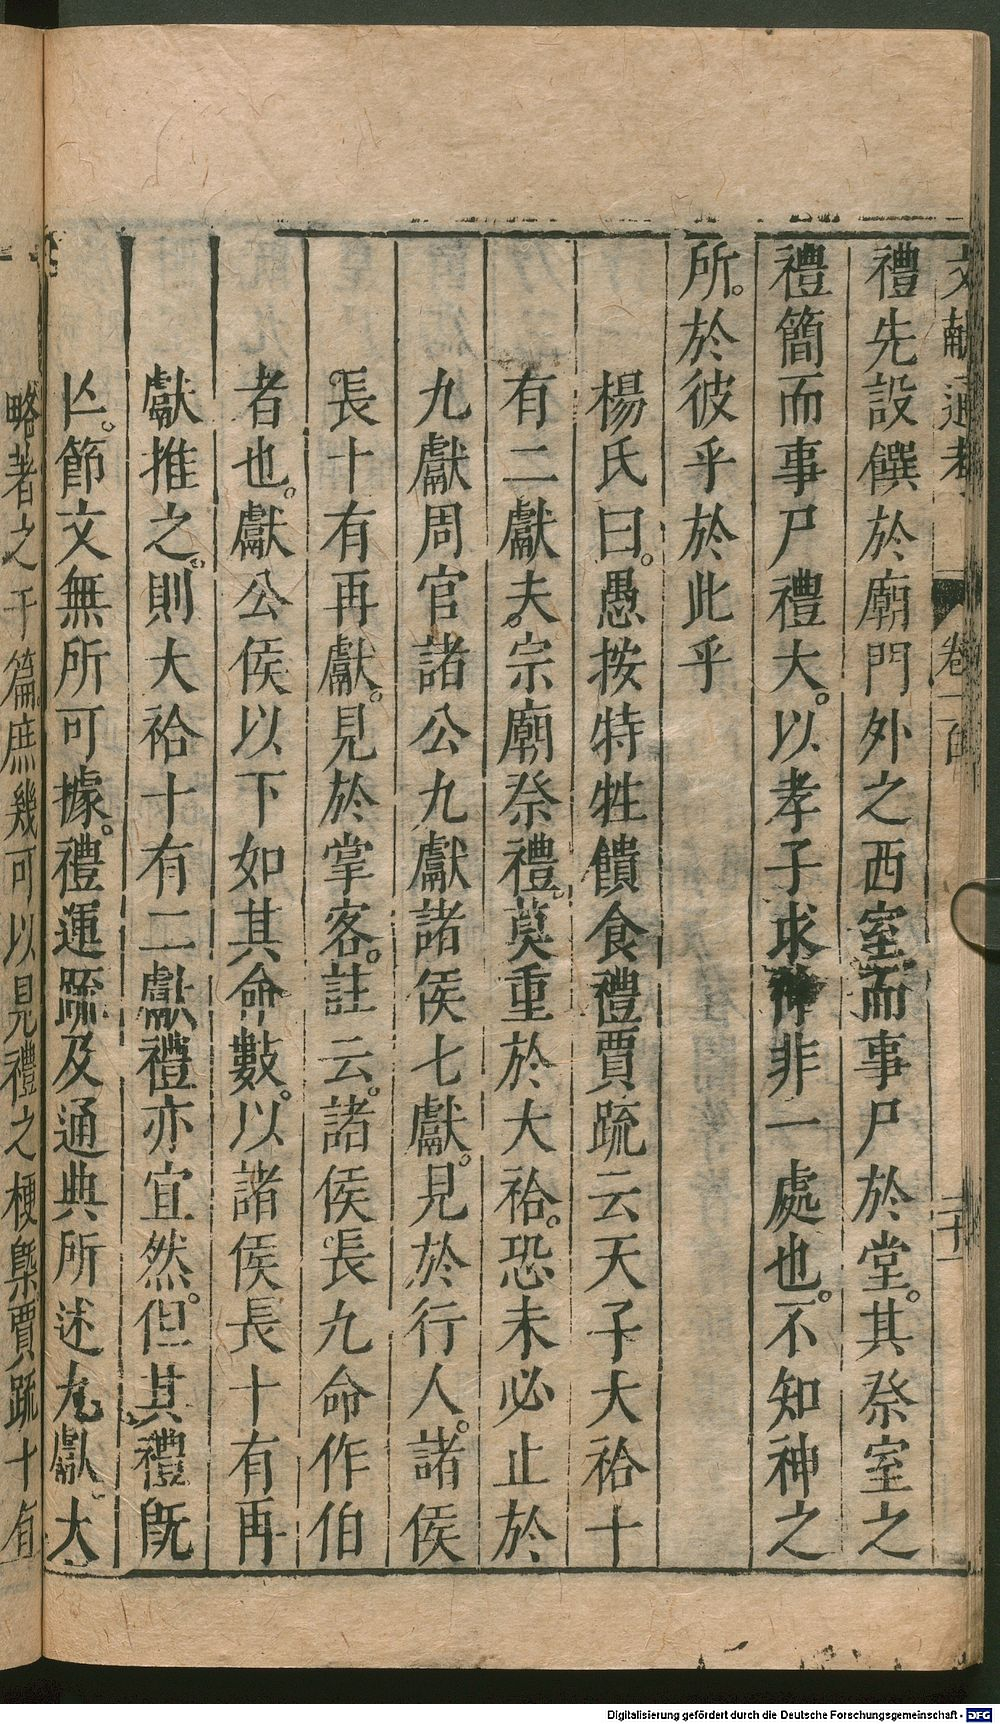 文獻通考 卷一百 二十一
禮先設饌於廟門外之西室而事尸於堂。其祭室之
禮簡而事尸禮大。以孝子求神非一處也。不知神之
所。於彼乎於此乎
楊氏曰。愚按特牲饋食禮賈疏云天子大祫十
有二獻夫。宗廟祭禮。莫重於大祫。恐未必止於
九獻周官諸公九獻諸侯七獻。見於行人。諸侯
長十有再獻。見於掌客。註云。諸侯長九命作伯
者也。獻公侯以下如其命數。以諸侯長十有再
獻推之。則大祫十有二獻禮亦宜然。但其禮旣
亾。節文無所可據。禮運疏及通典所述九獻。大
略者之于篇。庶幾可以見禮之梗槩賈疏十有
Digitalisierung gefördert durch die Deutsche Forschungsgemeinschaft - DFG